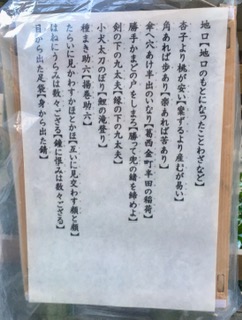 地口【地口のもとになったことわざなど】
杏子より梅が安い【案ずるより産むが易い】
角あれば歩あり【楽あれば苦あり】
傘へ穴あけ半出のいなり【葛西金町半田の稲荷】
勝手かまどの戸をしまろ【勝って兜の緒を締めよ】
剣の下の九太夫【縁の下の九太夫】
小犬太刀のぼり【鯉の滝登り】
種まき助六【揚巻助六】
たらいに見かわすかほとかほ【互いに見交わす顔と顔】
はしにうらみは数々ござる【鐘に恨みは数々ござる】
目から出た足袋【身から出た錆】